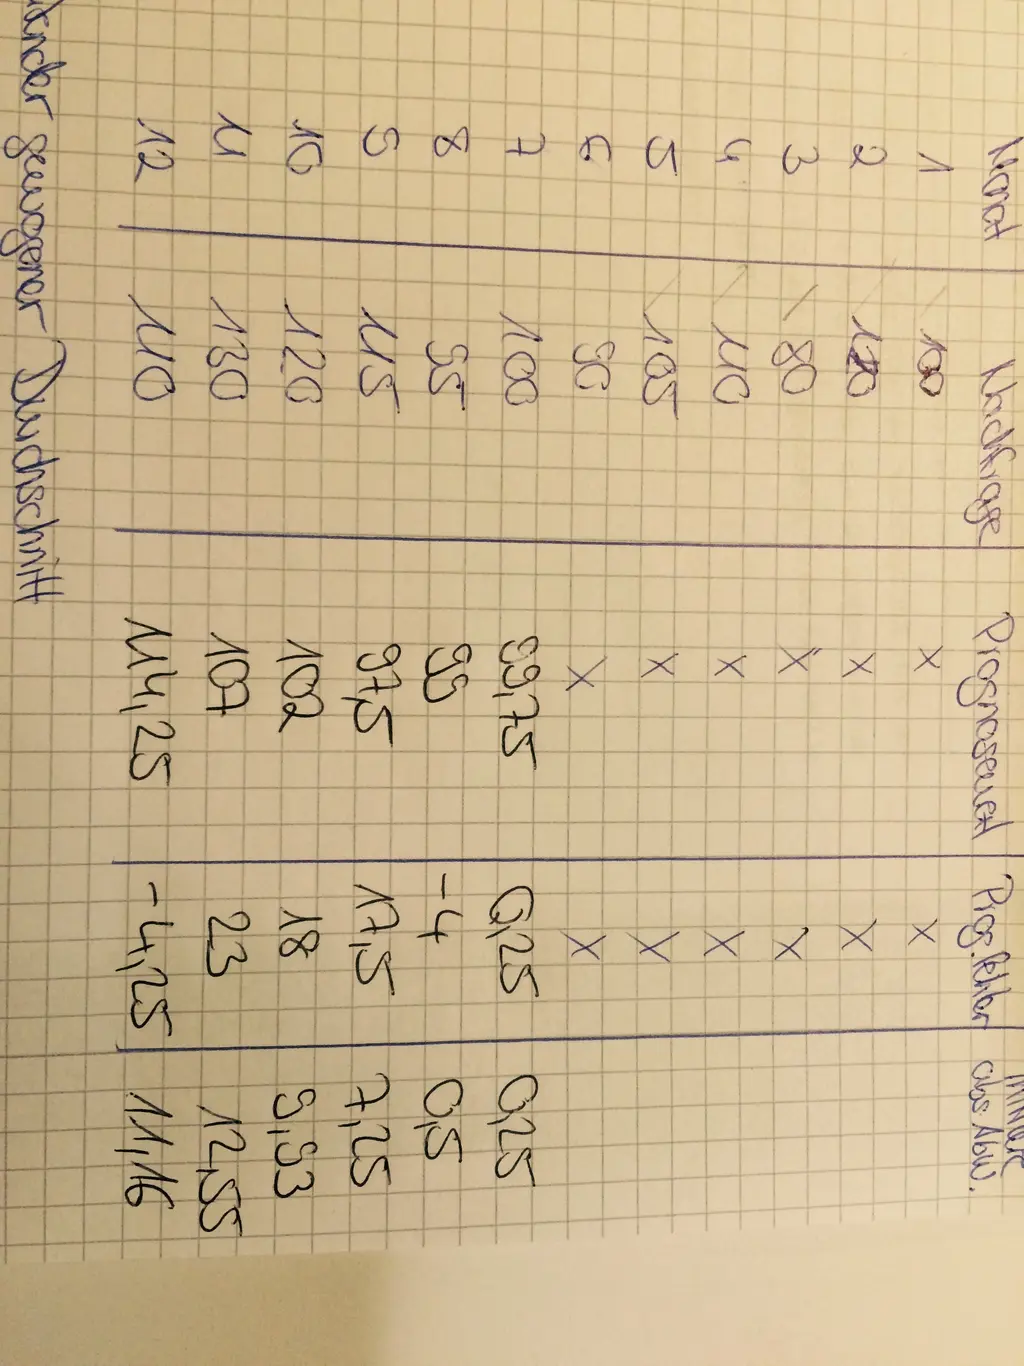 Monat Nachfrage Prognosewert Prog.fehler mittlere abs. Abw.
1 100 x x
2 x x
3 80 x x
4 110 x x
5 105 x x
6 90 x x
7 100 99,75 0,25 0,25
8 95 99 -4 0,5
9 115 97,5 17,5 7,25
10 120 102 18 9,93
11 130 107 23 12,55
12 110 114,25 -4,25 11,16
gewogener Durchschnitt